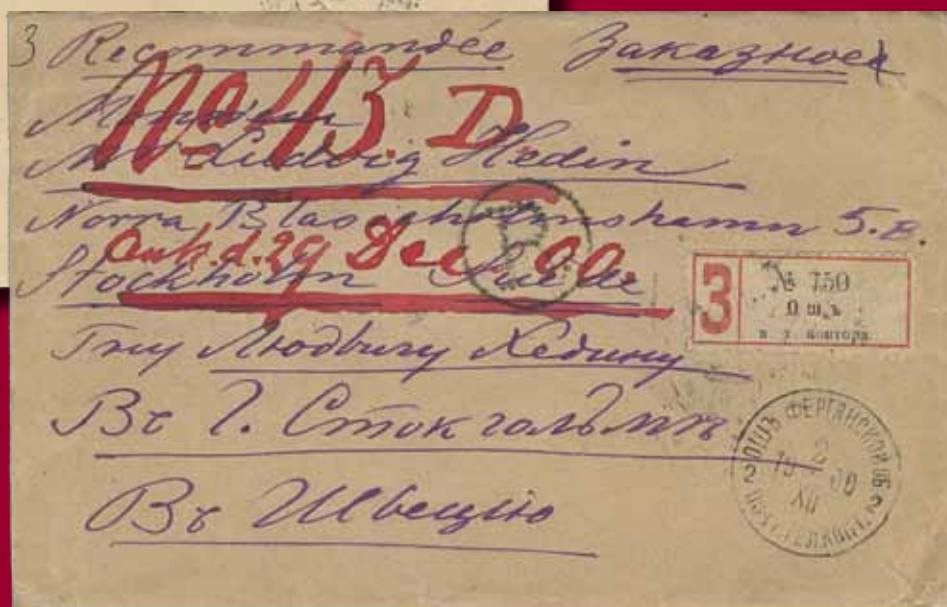 3 Recommandée Заказное
No 43. D.
Monsieur
Mr Ludvig Hedin
Norra Blasieholmshamn 5.B.
Ank. d. 29 Dec. 00.
Stockholm Suède
3
№ 750
Ошъ
п. т. контора
Гну Людвигу Хедину
Въ Г. Стокгольмъ
Въ Швецію
ОШЪ ФЕРГАНСКОЙ ОБ.
2
19 00
XII
2 2
ПОЧТ. ТЕЛ. КОНТ.